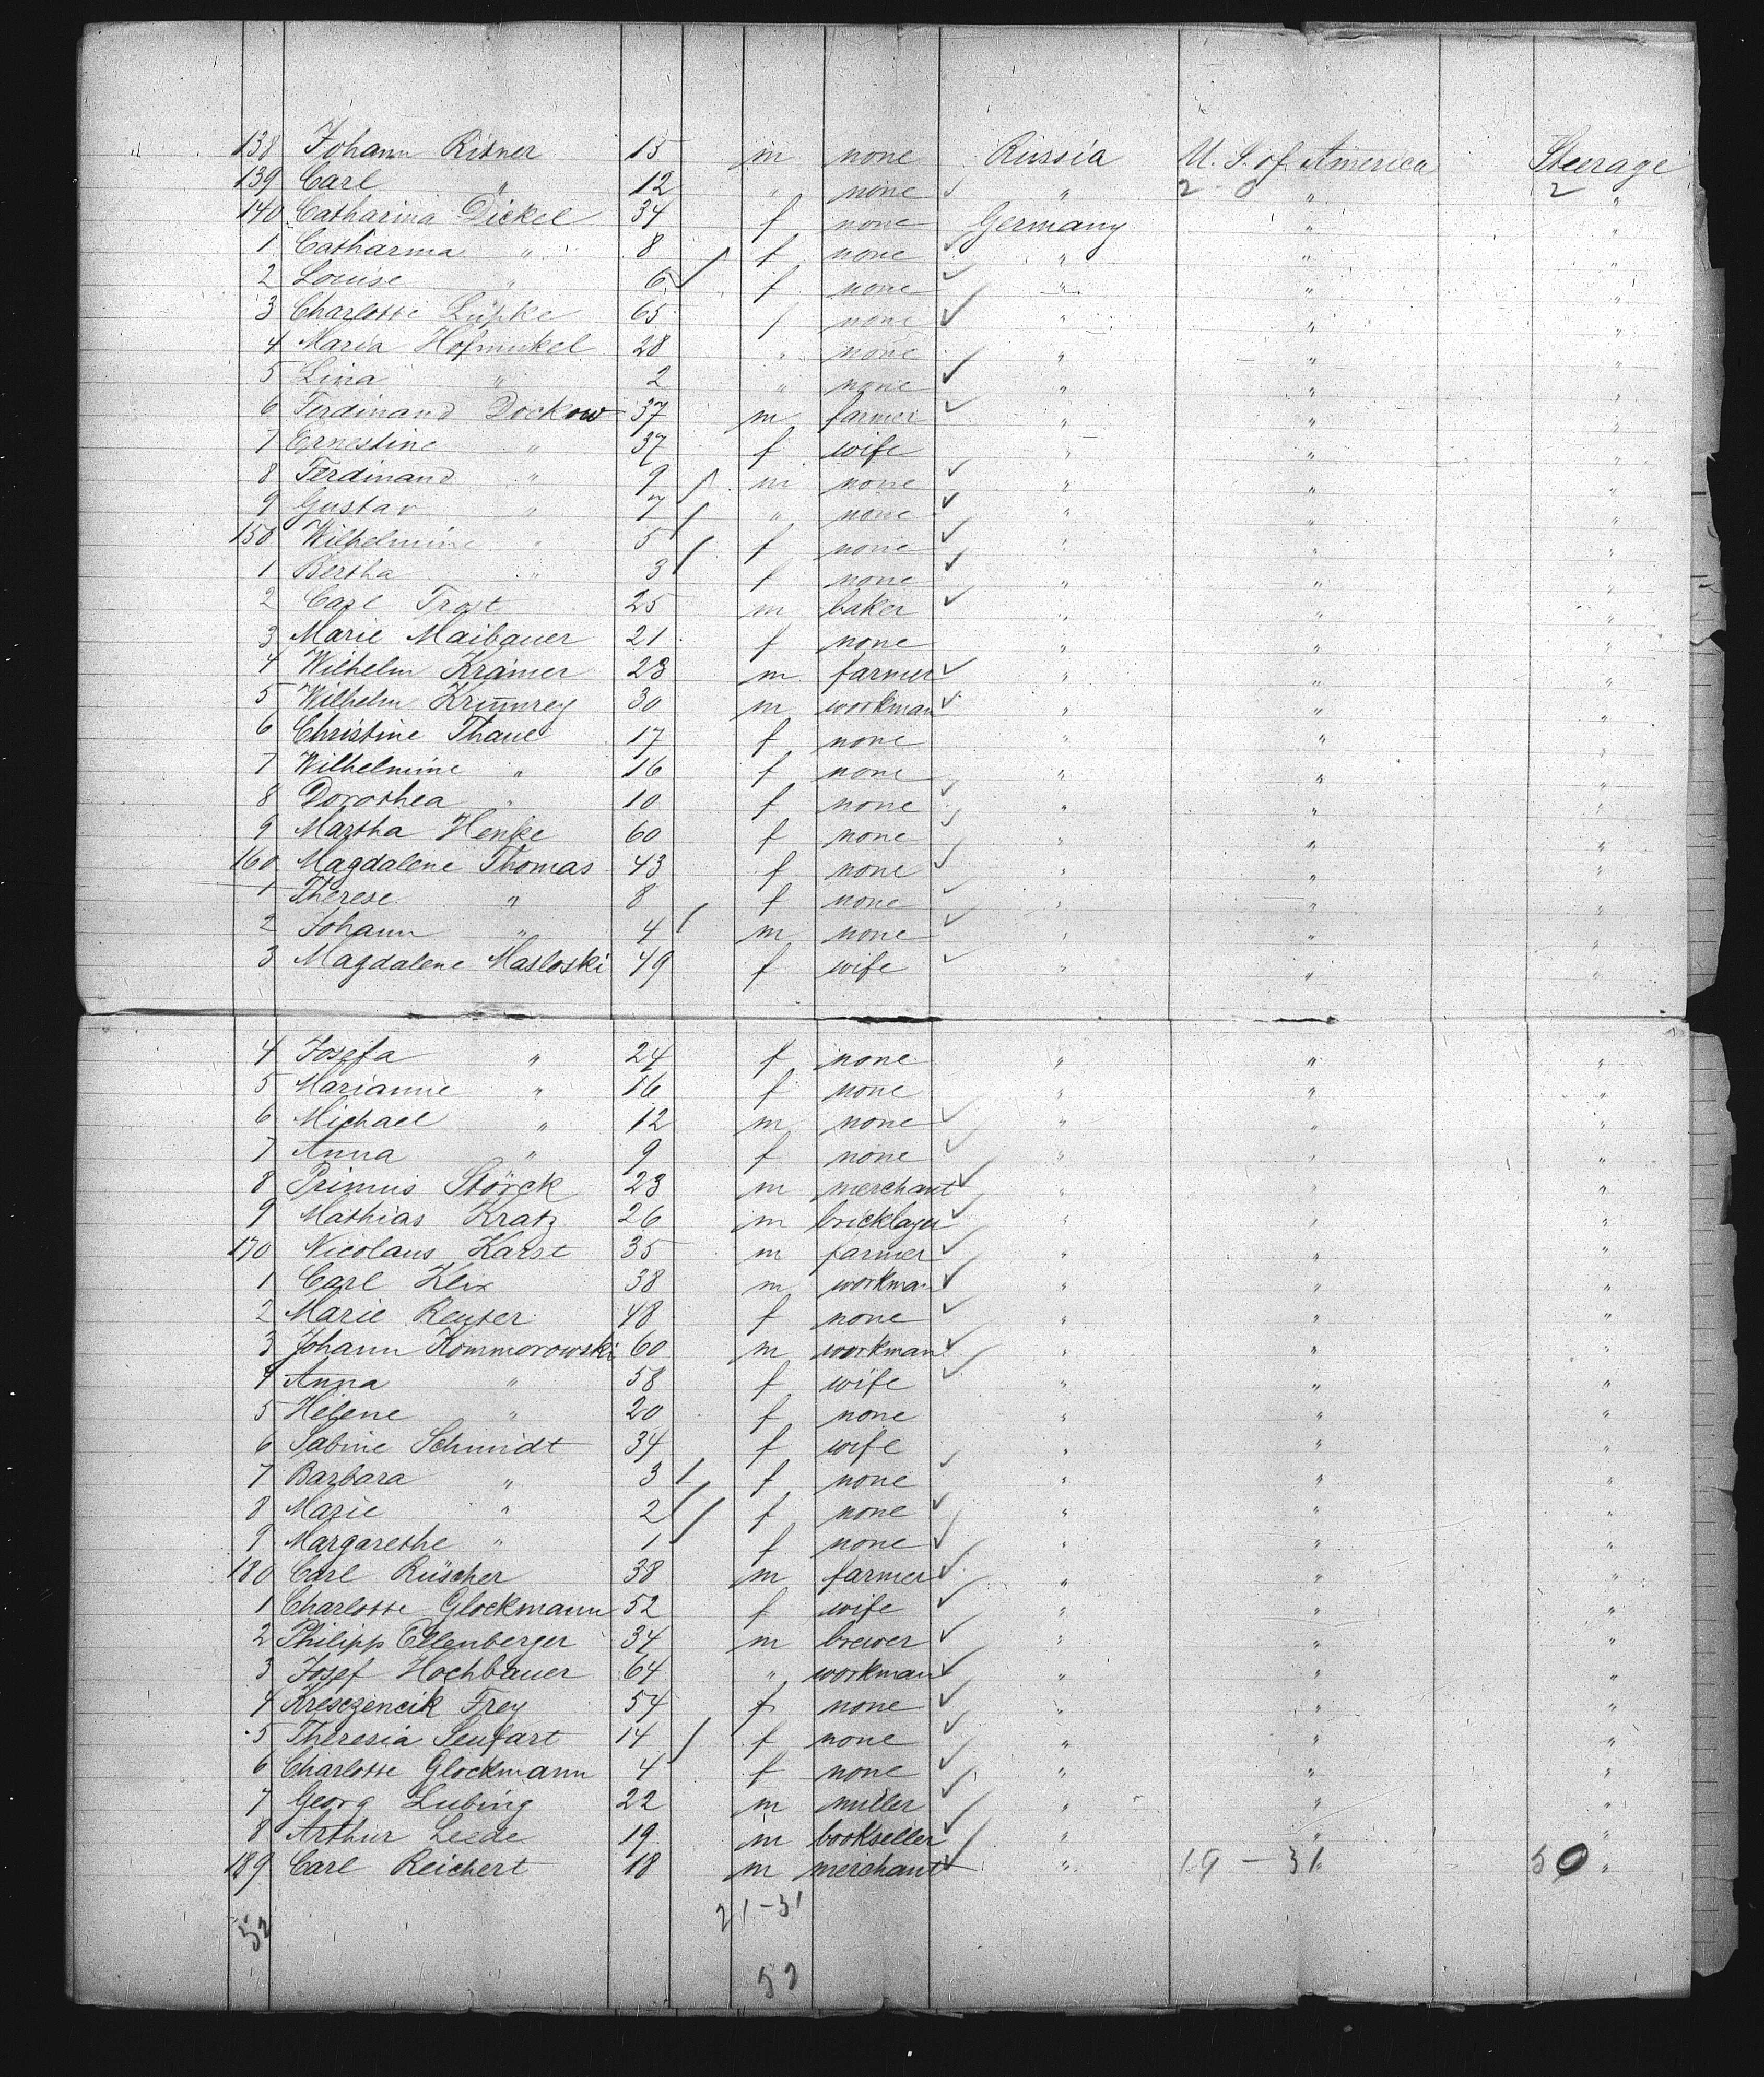 138 Johann Ritner 15 m none Russia U. S. of America Steerage
139 Carl " 12 " none " 2 - 0 " 2 "
140 Catharina Dickel 34 f none Germany " "
1 Catharina " 8 f none " " "
2 Louise " 6 f none " " "
3 Charlotte Lüpke 65 f none " " "
4 Maria Hofmukel 28 " none " " "
5 Lina " 2 " none " " "
6 Ferdinand Dockow 37 m farmer " " "
7 Ernestine " 37 f wife " " "
8 Ferdinand " 9 m none " " "
9 Gustav " 7 " none " " "
150 Wilhelmine " 5 f none " " "
1 Bertha " 3 f none " " "
2 Carl Trost 25 m baker " " "
3 Marie Maibauer 21 f none " " "
4 Wilhelm Krämer 28 m farmer " " "
5 Wilhelm Krumrey 30 m workman " " "
6 Christine Thaue 17 f none " " "
7 Wilhelmine " 16 f none " " "
8 Dorothea " 10 f none " " "
9 Martha Henke 60 f none " " "
160 Magdalene Thomas 43 f none " " "
1 Therese " 8 f none " " "
2 Johann " 4 m none " " "
3 Magdalene Masloski 49 f wife " " "
4 Josefa " 24 f none " " "
5 Marianne " 16 f none " " "
6 Michael " 12 m none " " "
7 Anna " 9 f none " " "
8 Primus Störck 23 m merchant " " "
9 Mathias Kratz 26 m bricklayer " " "
170 Nicolaus Karst 35 m farmer " " "
1 Carl Klix 38 m workman " " "
2 Marie Reuter 48 f none " " "
3 Johann Kommorowski 60 m workman " " "
4 Anna " 58 f wife " " "
5 Helene " 20 f none " " "
6 Sabine Schmidt 34 f wife " " "
7 Barbara " 3 f none " " "
8 Marie " 2 f none " " "
9 Margarethe " 1 f none " " "
180 Carl Rüscher 38 m farmer " " "
1 Charlotte Glockmann 52 f wife " " "
2 Philipp Ellenberger 34 m brewer " " "
3 Josef Hochbauer 64 " workman " " "
4 Kresczencik Frey 54 f none " " "
5 Theresia Seufart 14 f none " " "
6 Charlotte Glockmann 4 f none " " "
7 Georg Lubing 22 m miller " " "
8 Arthur Leede 19 m bookseller " " "
189 Carl Reichert 18 m merchant " 19 - 31 " 50 "
52 21-31
52